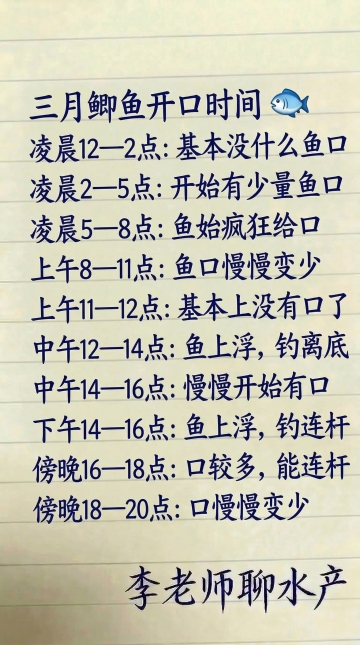 三月鲫鱼开口时间🐟
凌晨12—2点: 基本没什么鱼口
凌晨2—5点: 开始有少量鱼口
凌晨5—8点: 鱼始疯狂给口
上午8—11点: 鱼口慢慢变少
上午11—12点: 基本上没有口了
中午12—14点: 鱼上浮, 钓离底
中午14—16点: 慢慢开始有口
下午14—16点: 鱼上浮, 钓连杆
傍晚16—18点: 口较多, 能连杆
傍晚18—20点: 口慢慢变少
李老师聊水产